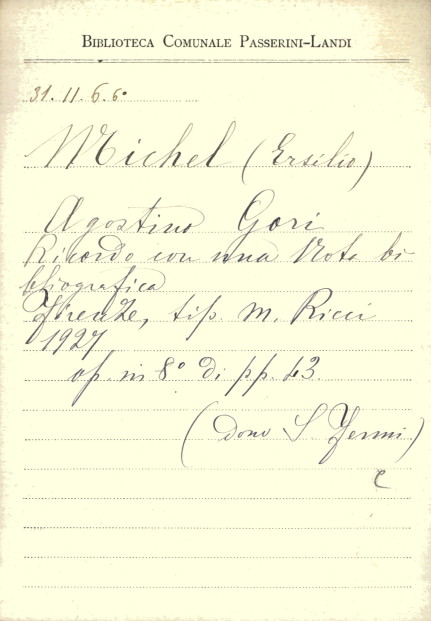 BIBLIOTECA COMUNALE PASSERINI-LANDI
31.11.6.6º
Michel (Ersilio)
Agostino Gori
Ricordo con una Nota bi
bliografica
Firenze, tip. M. Ricci
1927
op. in 8º di pp. 43.
(dono S. Fermi)